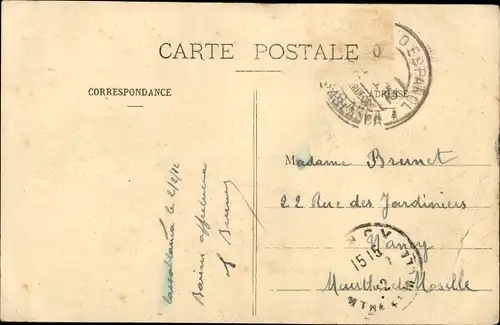 CARTE POSTALE
CORRESPONDANCE
ADRESSE
O ESPAÑOL
Casablanca le 2/2/12
Baisers affectueux
Madame Brunet
22 Rue des Jardiniers
Nancy
Meurthe et Moselle
NANCY
15 15
MTHE